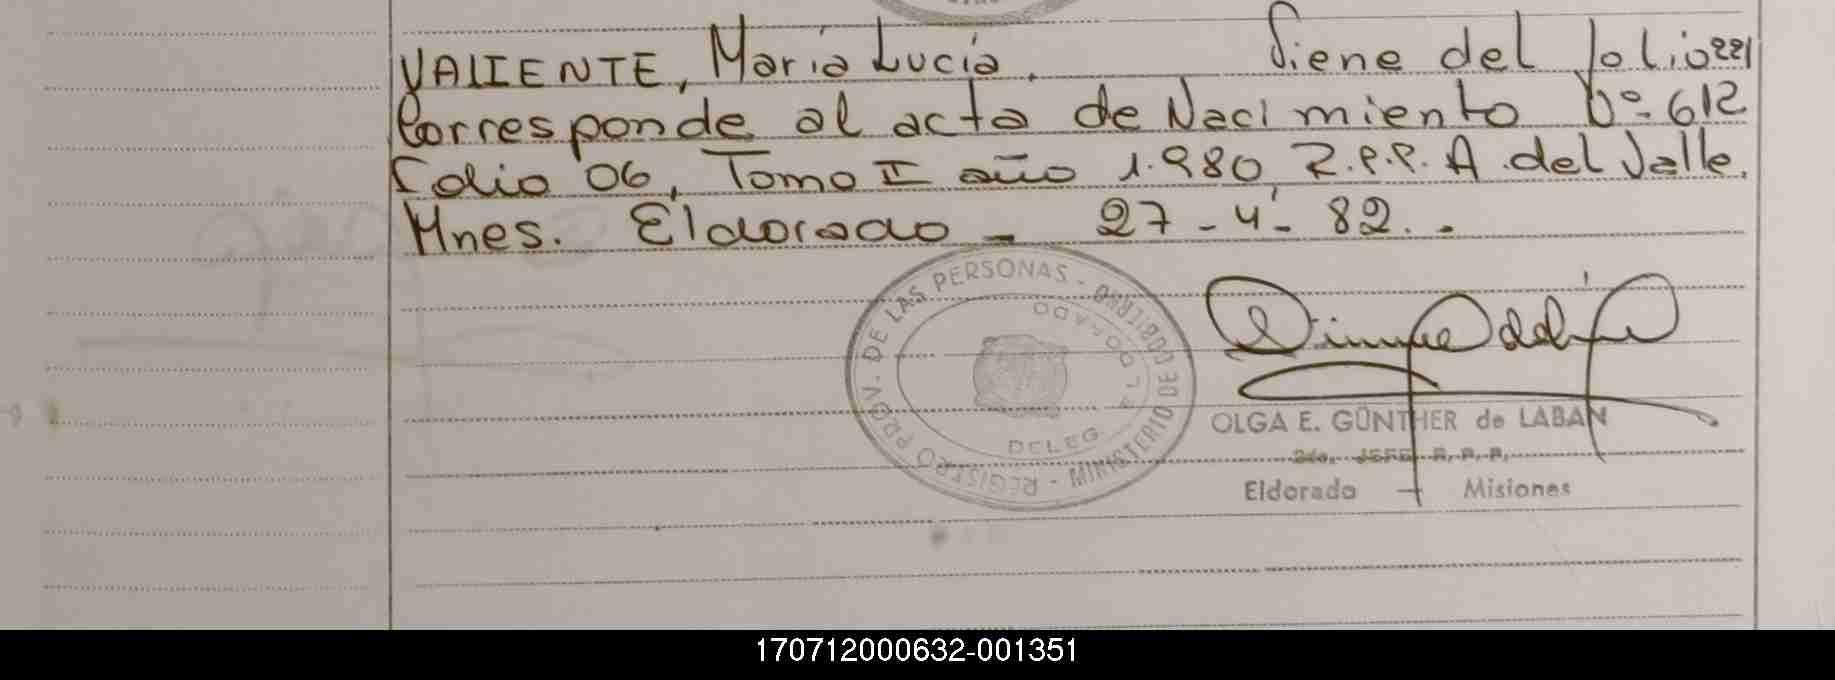 VALIENTE, María Lucía. Viene del folio 221
Corresponde al acta de Nacimiento Nº 612
Folio 06, Tomo I año 1.980, R.P.P. A. del Valle.
Mnes. Eldorado - 27-4-82..
REGISTRO PROV. DE LAS PERSONAS - MINISTERIO DE
ELDORADO
DELEG.
OLGA E. GÜNTHER de LABAN
2do. JEFE R. P. P.
Eldorado - Misiones
170712000632-001351